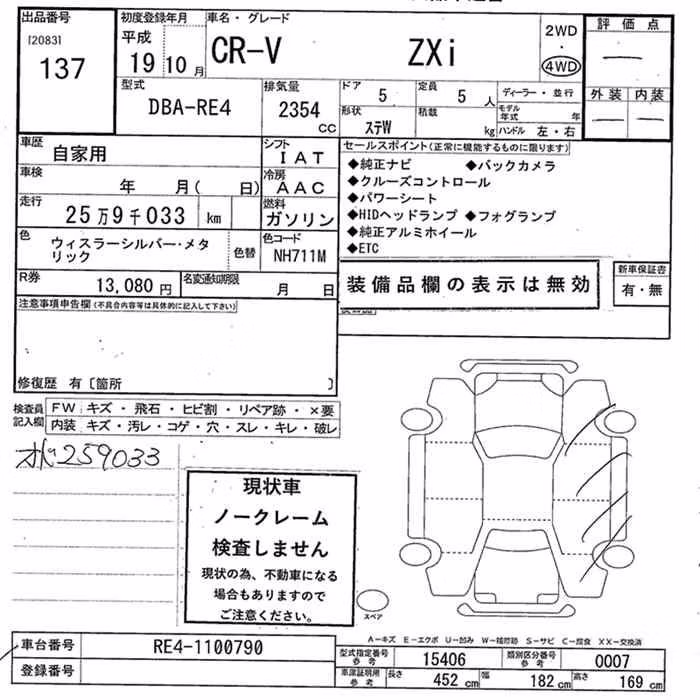 出品番号
[2083]
137
初度登録年月
平成
19 10 月
車名・グレード
CR-V ZXi
2WD
・
4WD
評価点
—
外装 内装
— —
型式
DBA-RE4
排気量
2354
CC
ドア 5
定員 5 人
形状 ステW
積載 kg
ディーラー・並行
モデル年式 年
ハンドル 左・右
車歴
自家用
シフト
IAT
車検
年 月( 日)
冷房
AAC
走行
25万9千033 km
燃料
ガソリン
色
ウィスラーシルバー・メタ
リック
色替
色コード
NH711M
R券
13,080 円
名変通知期限
月 日
セールスポイント(正常に機能するものに限ります)
◆純正ナビ ◆バックカメラ
◆クルーズコントロール
◆パワーシート
◆HIDヘッドランプ ◆フォグランプ
◆純正アルミホイール
◆ETC
装備品欄の表示は無効
新車保証書
有・無
注意事項申告欄(不具合内容等は具体的に記入して下さい)
修復歴 有〔箇所 〕
検査員
記入欄
FW キズ・飛石・ヒビ割・リペア跡・×要
内装 キズ・汚レ・コゲ・穴・スレ・キレ・破レ
259033
現状車
ノークレーム
検査しません
現状の為、不動車になる
場合もありますので
ご注意ください。
スペア
A−キズ E−エクボ U−凹み W−補修跡 S−サビ C−腐食 XX−交換済
車台番号
RE4-1100790
登録番号
型式指定番号
参考
15406
類別区分番号
参考
0007
車検証明用
参考
長さ 452 cm
幅 182 cm
高さ 169 cm